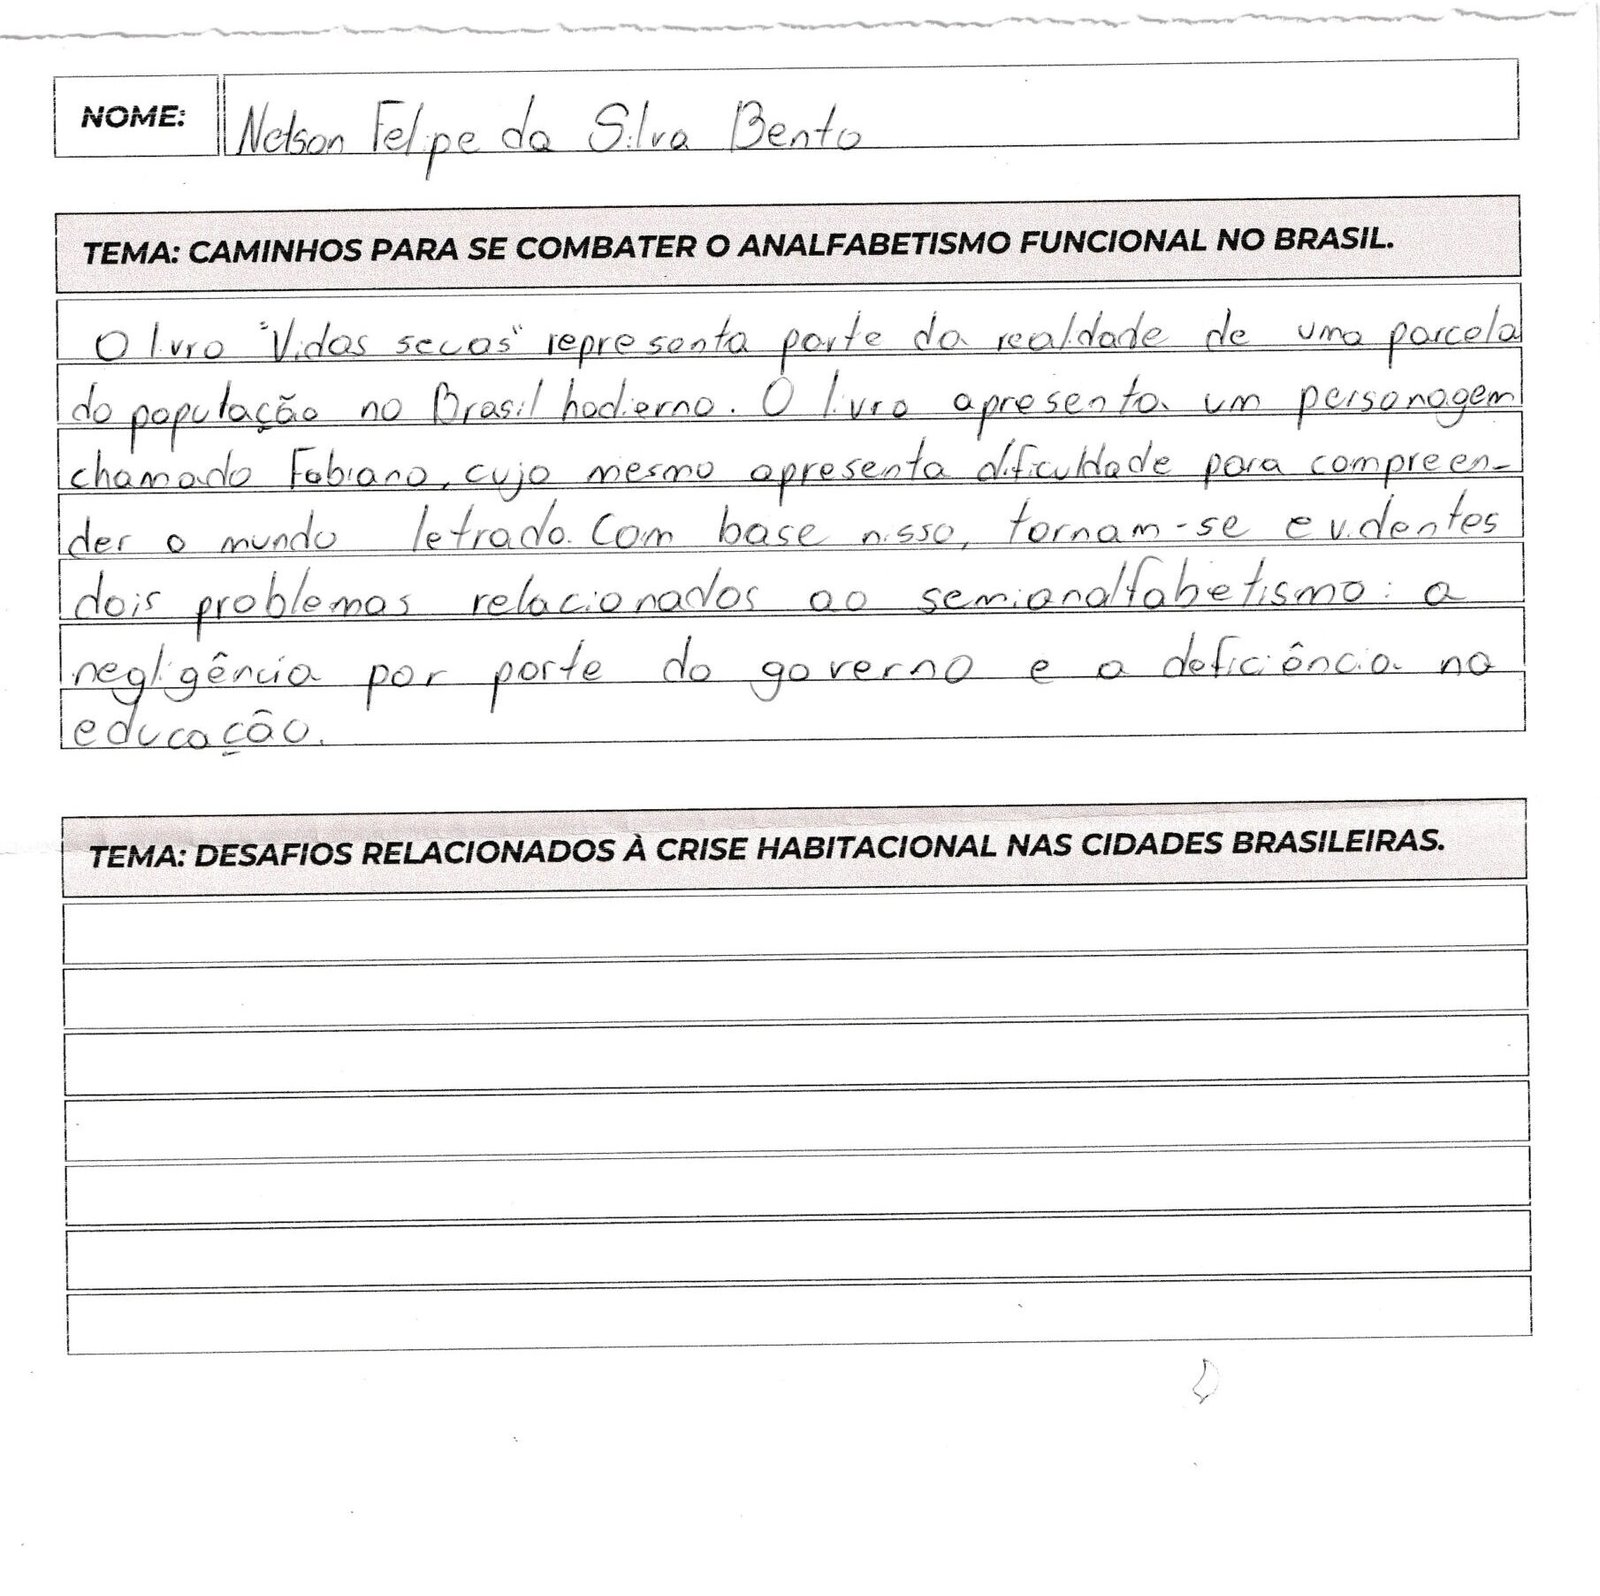 NOME: Nelson Felipe da Silva Bento
TEMA: CAMINHOS PARA SE COMBATER O ANALFABETISMO FUNCIONAL NO BRASIL.
O livro "Vidas secas" representa parte da realdade de uma parcela
da população no Brasil hodierno. O livro apresenta um personagem
chamado Fabiano, cujo mesmo apresenta dificuldade para compreen-
der o mundo letrado. Com base nisso, tornam-se evidentes
dois problemas relacionados ao semianalfabetismo: a
negligência por parte do governo e a deficiência na
educação.
TEMA: DESAFIOS RELACIONADOS À CRISE HABITACIONAL NAS CIDADES BRASILEIRAS.